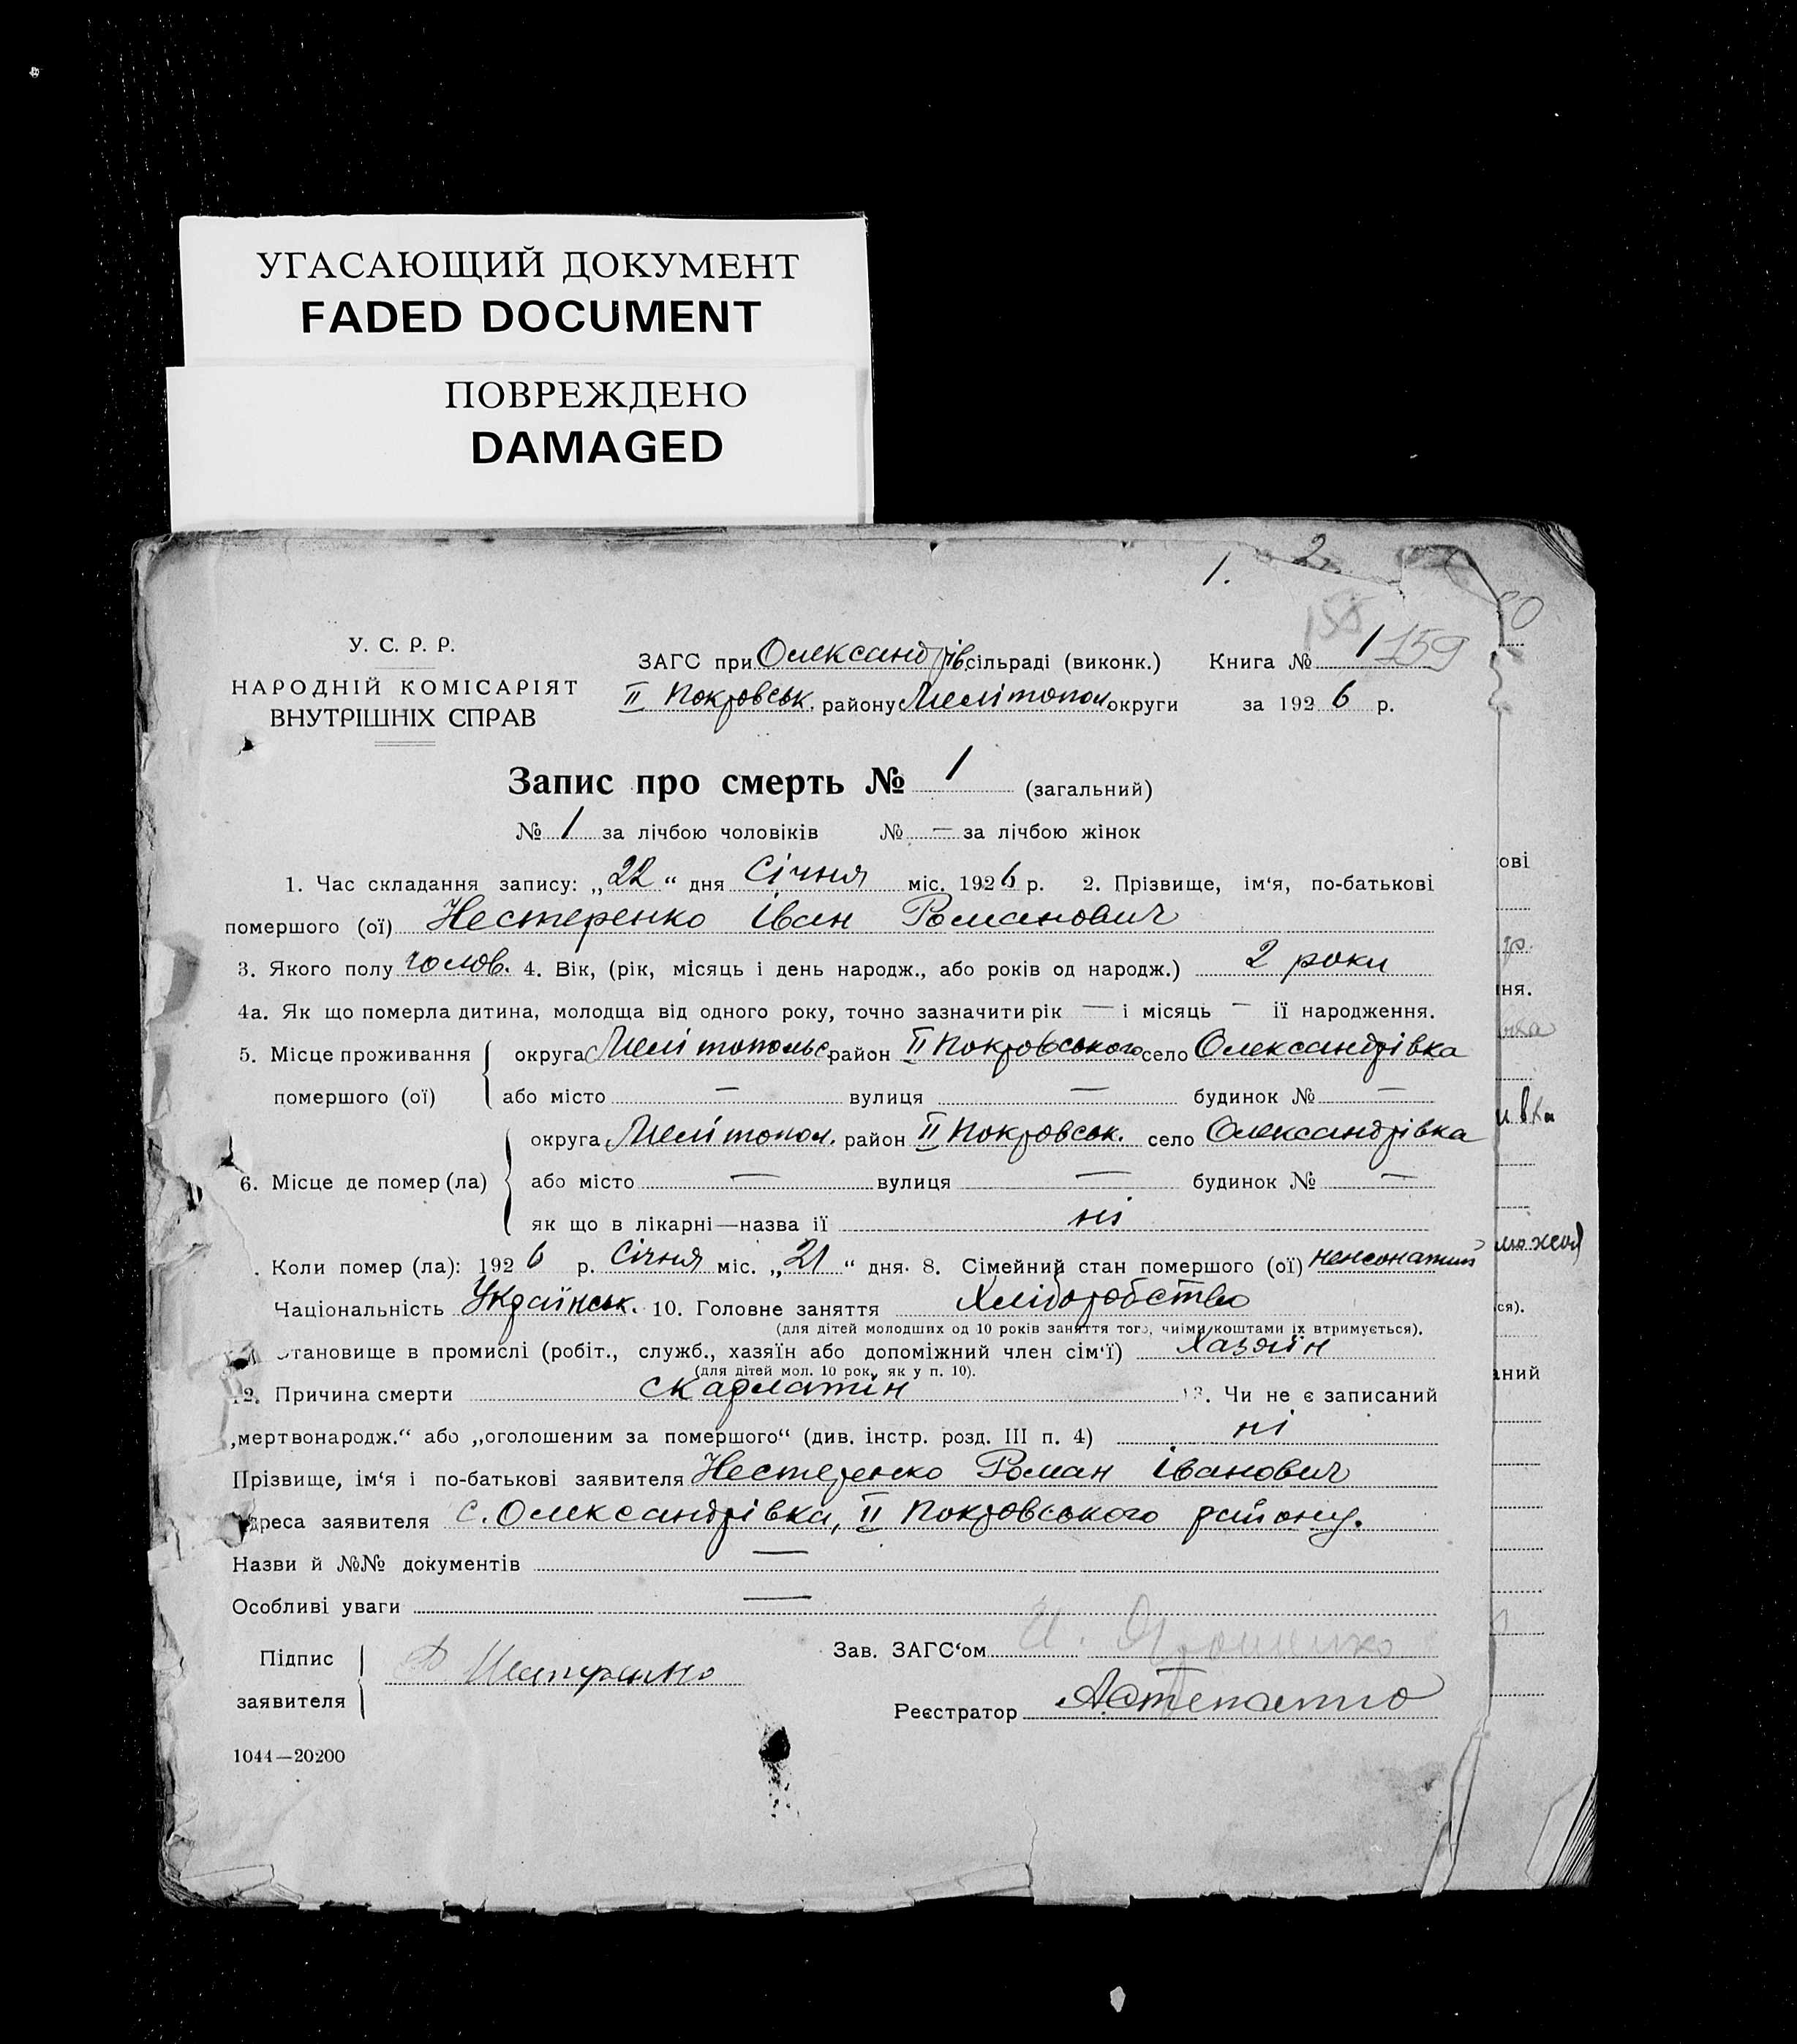 УГАСАЮЩИЙ ДОКУМЕНТ
FADED DOCUMENT
ПОВРЕЖДЕНО
DAMAGED
1. 2.
158
У. С. Р. Р.
НАРОДНІЙ КОМІСАРІЯТ
ВНУТРІШНІХ СПРАВ
ЗАГС при Олександрів. сільраді (виконк.) Книга № 1 159
II Покровськ. району Мелітопол. округи за 1926 р.
Запис про смерть № 1 (загальний)
№ 1 за лічбою чоловіків № — за лічбою жінок
1. Час складання запису: „22“ дня Січня міс. 1926 р. 2. Прізвище, ім‘я, по-батькові
помершого (ої) Нестеренко Іван Романович
3. Якого полу чолов. 4. Вік, (рік, місяць і день народж., або років од народж.) 2 роки
4а. Як що померла дитина, молодща від одного року, точно зазначити рік — і місяць — її народження.
5. Місце проживання округа Мелітопольс район II Покровського село Олександрівка
помершого (ої) або місто — вулиця — будинок № —
округа Мелітопол. район II Покровськ. село Олександрівка
6. Місце де помер (ла) або місто — вулиця — будинок № —
як що в лікарні—назва її ні
. Коли помер (ла): 1926 р. Січня міс. „21“ дня. 8. Сімейний стан помершого (ої) неженатий
Чаціональність Українськ. 10. Головне заняття Хліборобство
(для дітей молодших од 10 років заняття того, чиїми коштами їх втримується).
тановище в промислі (робіт., служб., хазяїн або допоміжний член сім‘ї) Хазяїн
(для дітей мол. 10 рок., як у п. 10).
12. Причина смерти скарлатін 13. Чи не є записаний
„мертвонародж.“ або „оголошеним за помершого“ (див. інстр. розд. III п. 4) ні
Прізвище, ім‘я і по-батькові заявителя Нестеренко Роман Іванович
Адреса заявителя с. Олександрівка, II Покровського району.
Назви й №№ документів —
Особливі уваги —
Підпис
заявителя
Р Нестеренко
Зав. ЗАГС‘ом
Реєстратор
1044—20200